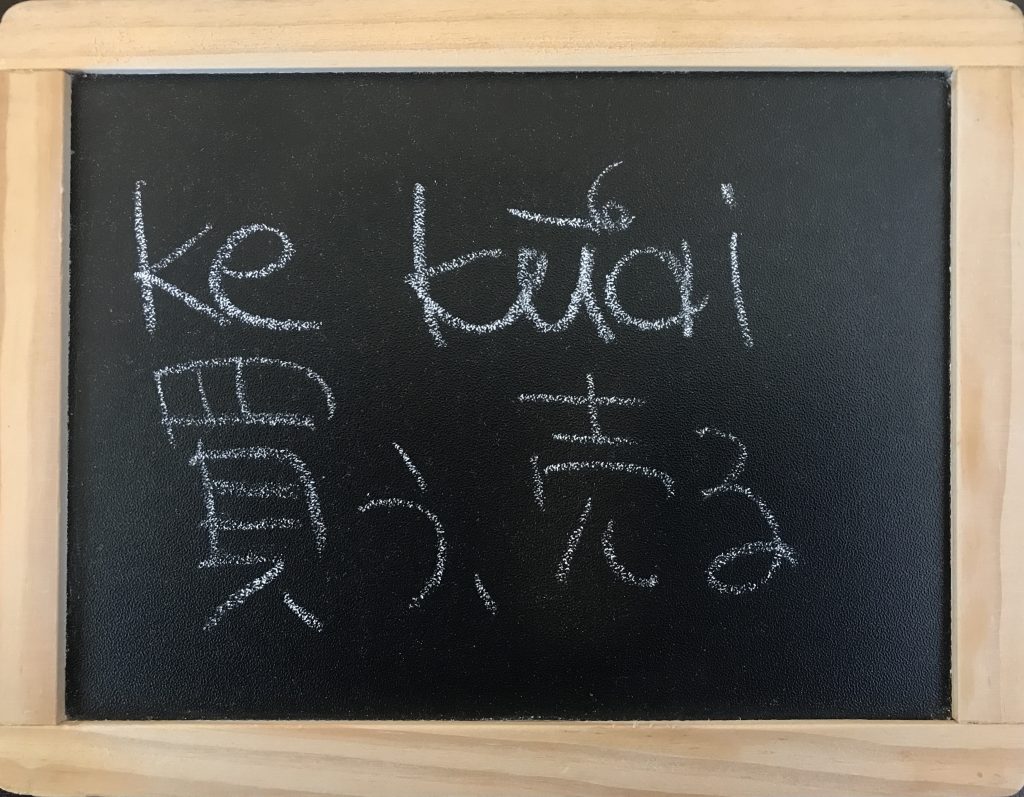 ke kūʻai
買う、売る